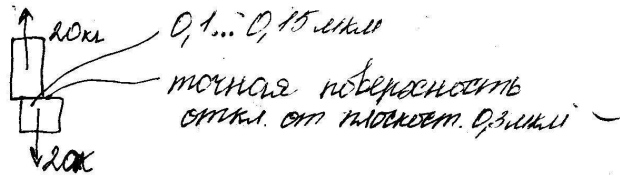 20кг
0,1...0,15 мкм
точная поверхность
откл. от плоскост. 0,3 мкм
20К